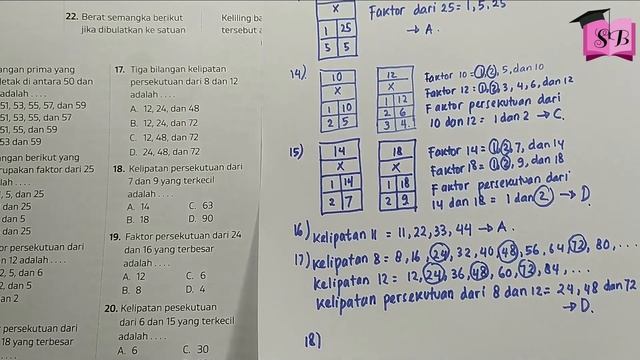 22. Berat semangka berikut
jika dibulatkan ke satuan
Keliling
tersebut
angan prima yang
letak di antara 50 dan
adalah . . . .
51, 53, 55, 57, dan 59
51, 53, 55, dan 57
51, 55, dan 59
53 dan 59
ngan berikut yang
rupakan faktor dari 25
lah . . . .
, 5, dan 25
dan 25
dan 5
dan 25
or persekutuan dari
n 12 adalah . . . .
2, 5, dan 6
2, dan 5
an 2
persekutuan dari
18 yang terbesar
17. Tiga bilangan kelipatan
persekutuan dari 8 dan 12
adalah . . . .
A. 12, 24, dan 48
B. 12, 24, dan 72
C. 12, 48, dan 72
D. 24, 48, dan 72
18. Kelipatan persekutuan dari
7 dan 9 yang terkecil
adalah . . . .
A. 14 C. 63
B. 18 D. 90
19. Faktor persekutuan dari 24
dan 16 yang terbesar
adalah . . . .
A. 12 C. 6
B. 8 D. 4
20. Kelipatan pesekutuan
dari 6 dan 15 yang terkecil
adalah . . . .
A. 6 C. 30
x
1 25
5 5
Faktor dari 25 = 1, 5, 25
→ A.
14)
10
x
1 10
2 5
12
x
1 12
2 6
3 4
Faktor 10 = 1, 2, 5, dan 10
Faktor 12 = 1, 2, 3, 4, 6, dan 12
Faktor persekutuan dari
10 dan 12 = 1 dan 2 → C.
15)
14
x
1 14
2 7
18
x
1 18
2 9
Faktor 14 = 1, 2, 7, dan 14
Faktor 18 = 1, 2, 9, dan 18
Faktor persekutuan dari
14 dan 18 = 1 dan 2 → D.
16) Kelipatan 11 = 11, 22, 33, 44 → A.
17) Kelipatan 8 = 8, 16, 24, 32, 40, 48, 56, 64, 72, 80, . . .
Kelipatan 12 = 12, 24, 36, 48, 60, 72, 84, . . .
Kelipatan persekutuan dari 8 dan 12 = 24, 48 dan 72
→ D.
18)
SB